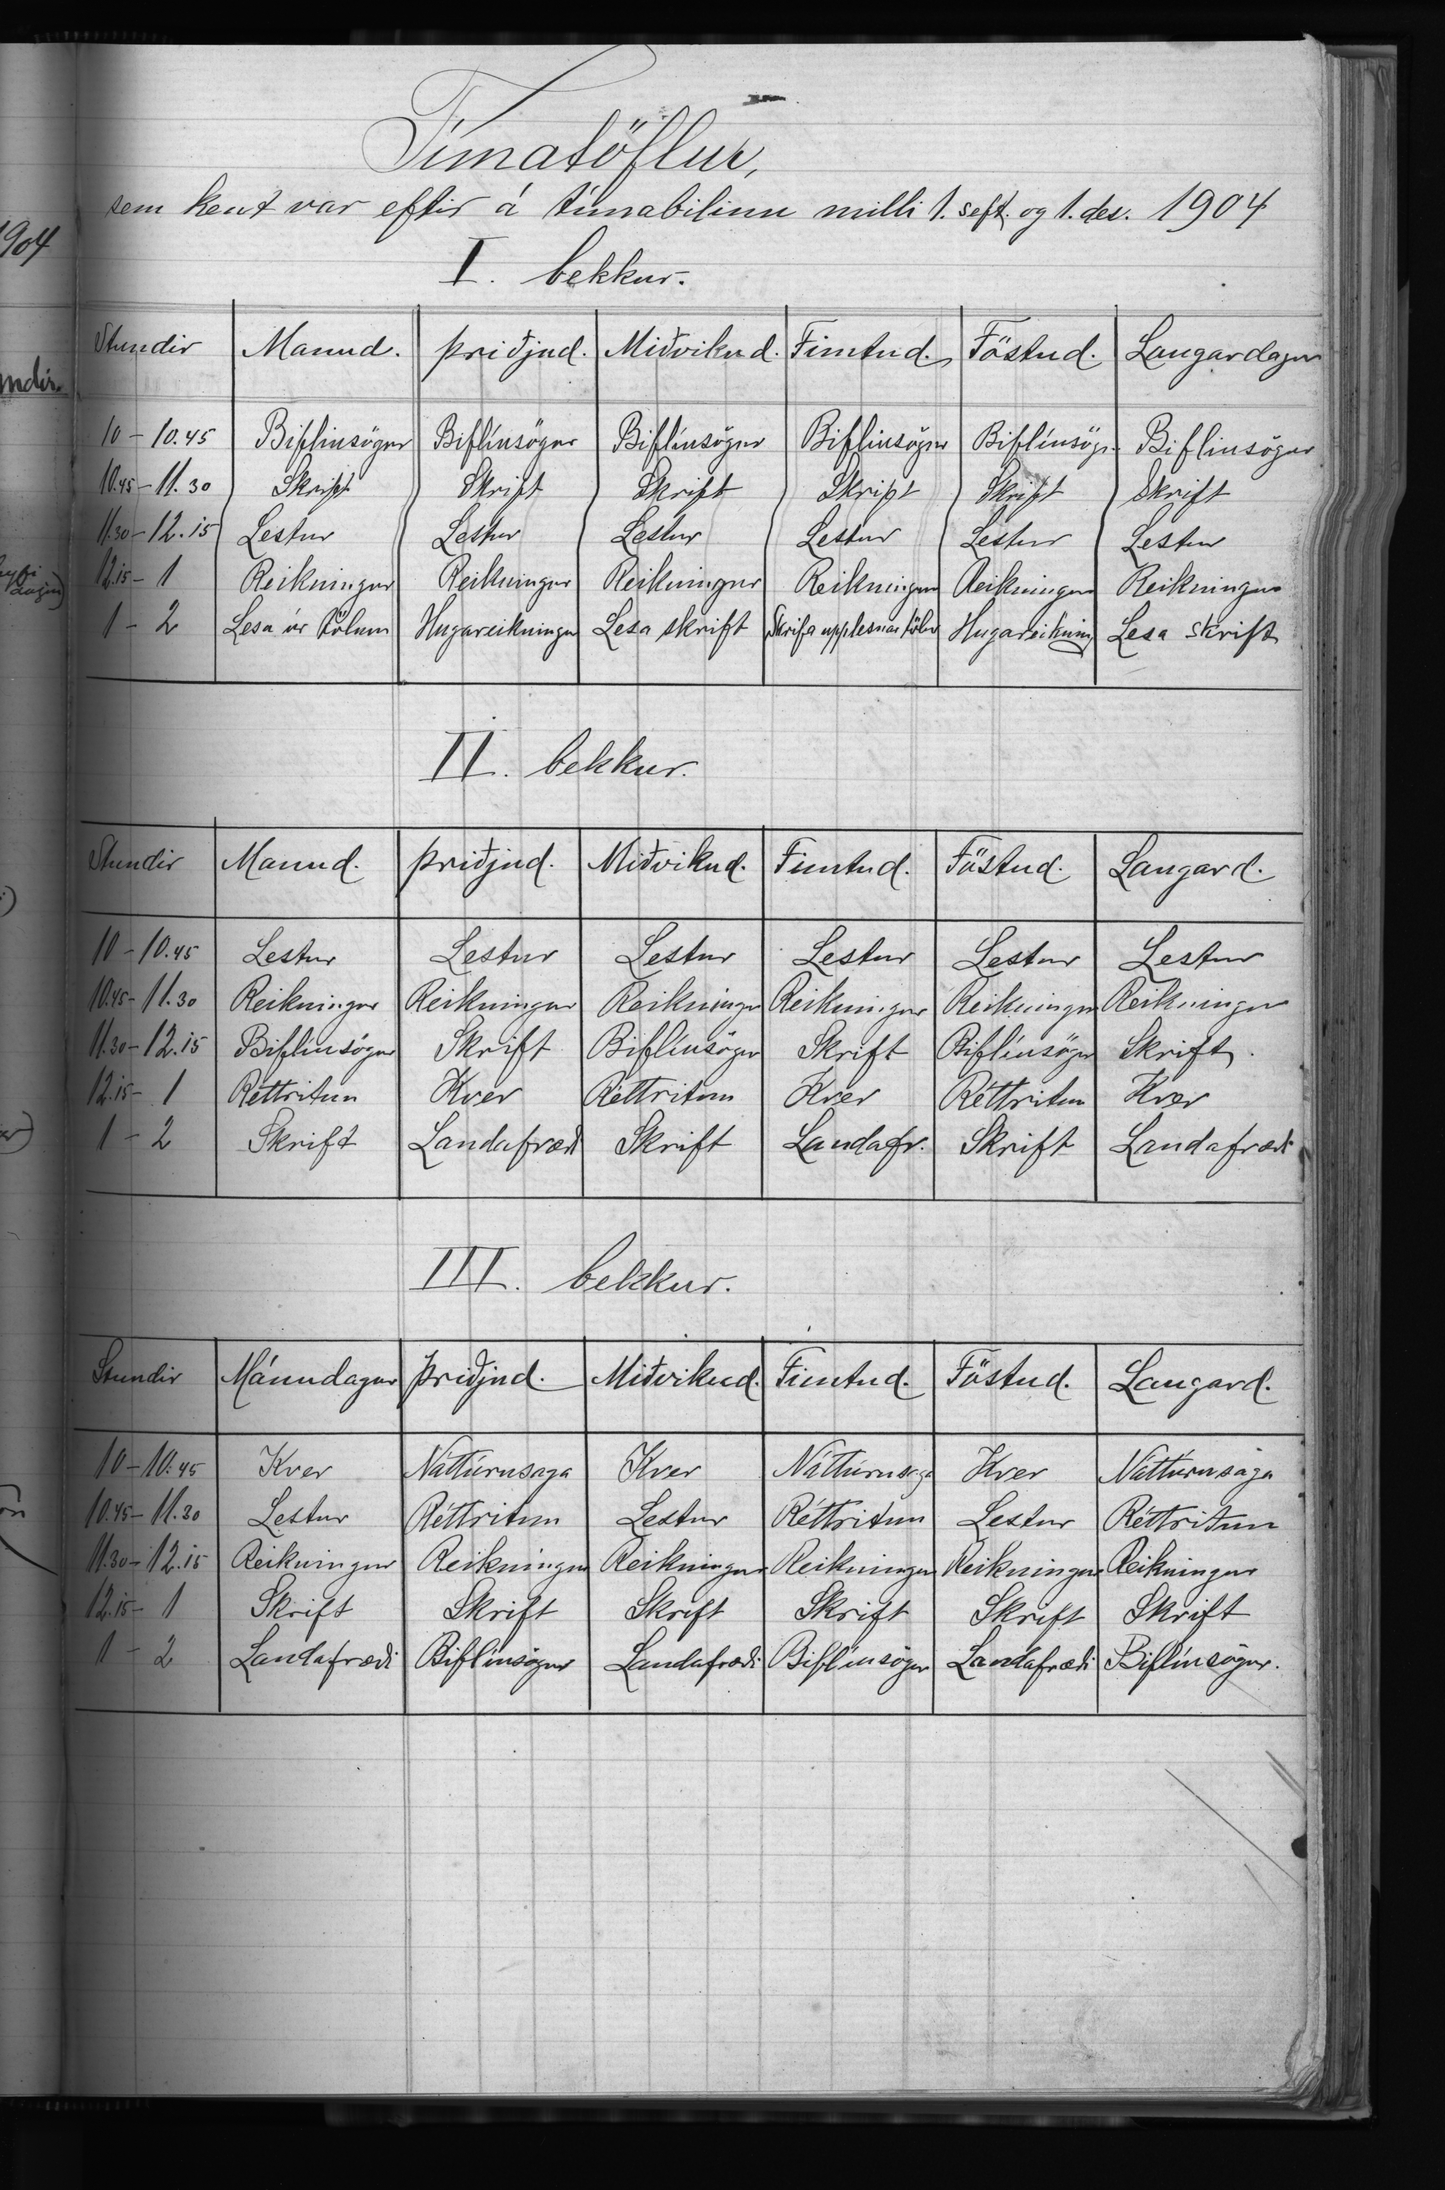 Tímatöflur,
sem kent var eftir á tímabilinu milli 1. sept. og 1. des. 1904
I. bekkur.
Stundir Manud. Þriðjud. Miðvikud. Fimtud. Föstud. Laugardagur
10 - 10.45 Biflíusögur Biflíusögur Biflíusögur Biflíusögur Biflíusögur Biflíusögur
10.45 - 11.30 Skrift Skrift Skrift Skrift Skrift Skrift
11.30 - 12.15 Lestur Lestur Lestur Lestur Lestur Lestur
12.15 - 1 Reikningur Reikningur Reikningur Reikningur Reikningur Reikningur
1 - 2 Lesa úr tölum Hugareikningur Lesa skrift Skrifa upplesnar tölur Hugareikning Lesa skrift
II. bekkur.
Stundir Manud. Þriðjud. Miðvikud. Fimtud. Föstud. Laugard.
10 - 10.45 Lestur Lestur Lestur Lestur Lestur Lestur
10.45 - 11.30 Reikningur Reikningur Reikningur Reikningur Reikningur Reikningur
11.30 - 12.15 Biflíusögur Skrift Biflíusögur Skrift Biflíusögur Skrift.
12.15 - 1 Réttritun Kver Réttritun Kver Réttritun Kver
1 - 2 Skrift Landafræði Skrift Landafr. Skrift Landafræði
III. bekkur.
Stundir Mánudagur Þriðjud. Miðvikud. Fimtud. Föstud. Laugard.
10 - 10.45 Kver Náttúrusaga Kver Náttúrusaga Kver Náttúrusaga
10.45 - 11.30 Lestur Réttritun Lestur Réttritun Lestur Réttritun
11.30 - 12.15 Reikningur Reikningur Reikningur Reikningur Reikningur Reikningur
12.15 - 1 Skrift Skrift Skrift Skrift Skrift Skrift
1 - 2 Landafræði Biflíusögur Landafræði Biflíusögur Landafræði Biflíusögur.
1904